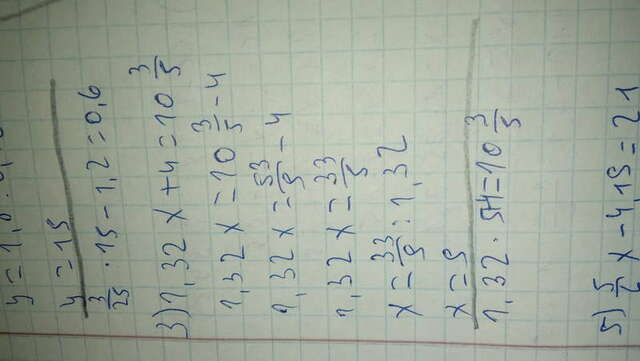 y = 15
3/25 · 15 - 1,2 = 0,6
3) 1,32 x + 4 = 10 3/5
1,32 x = 10 3/5 - 4
1,32 x = 53/5 - 4
1,32 x = 33/5
x = 33/5 : 1,32
x = 5
1,32 · 5+4 = 10 3/5
5) 5/6 x - 4,15 = 21